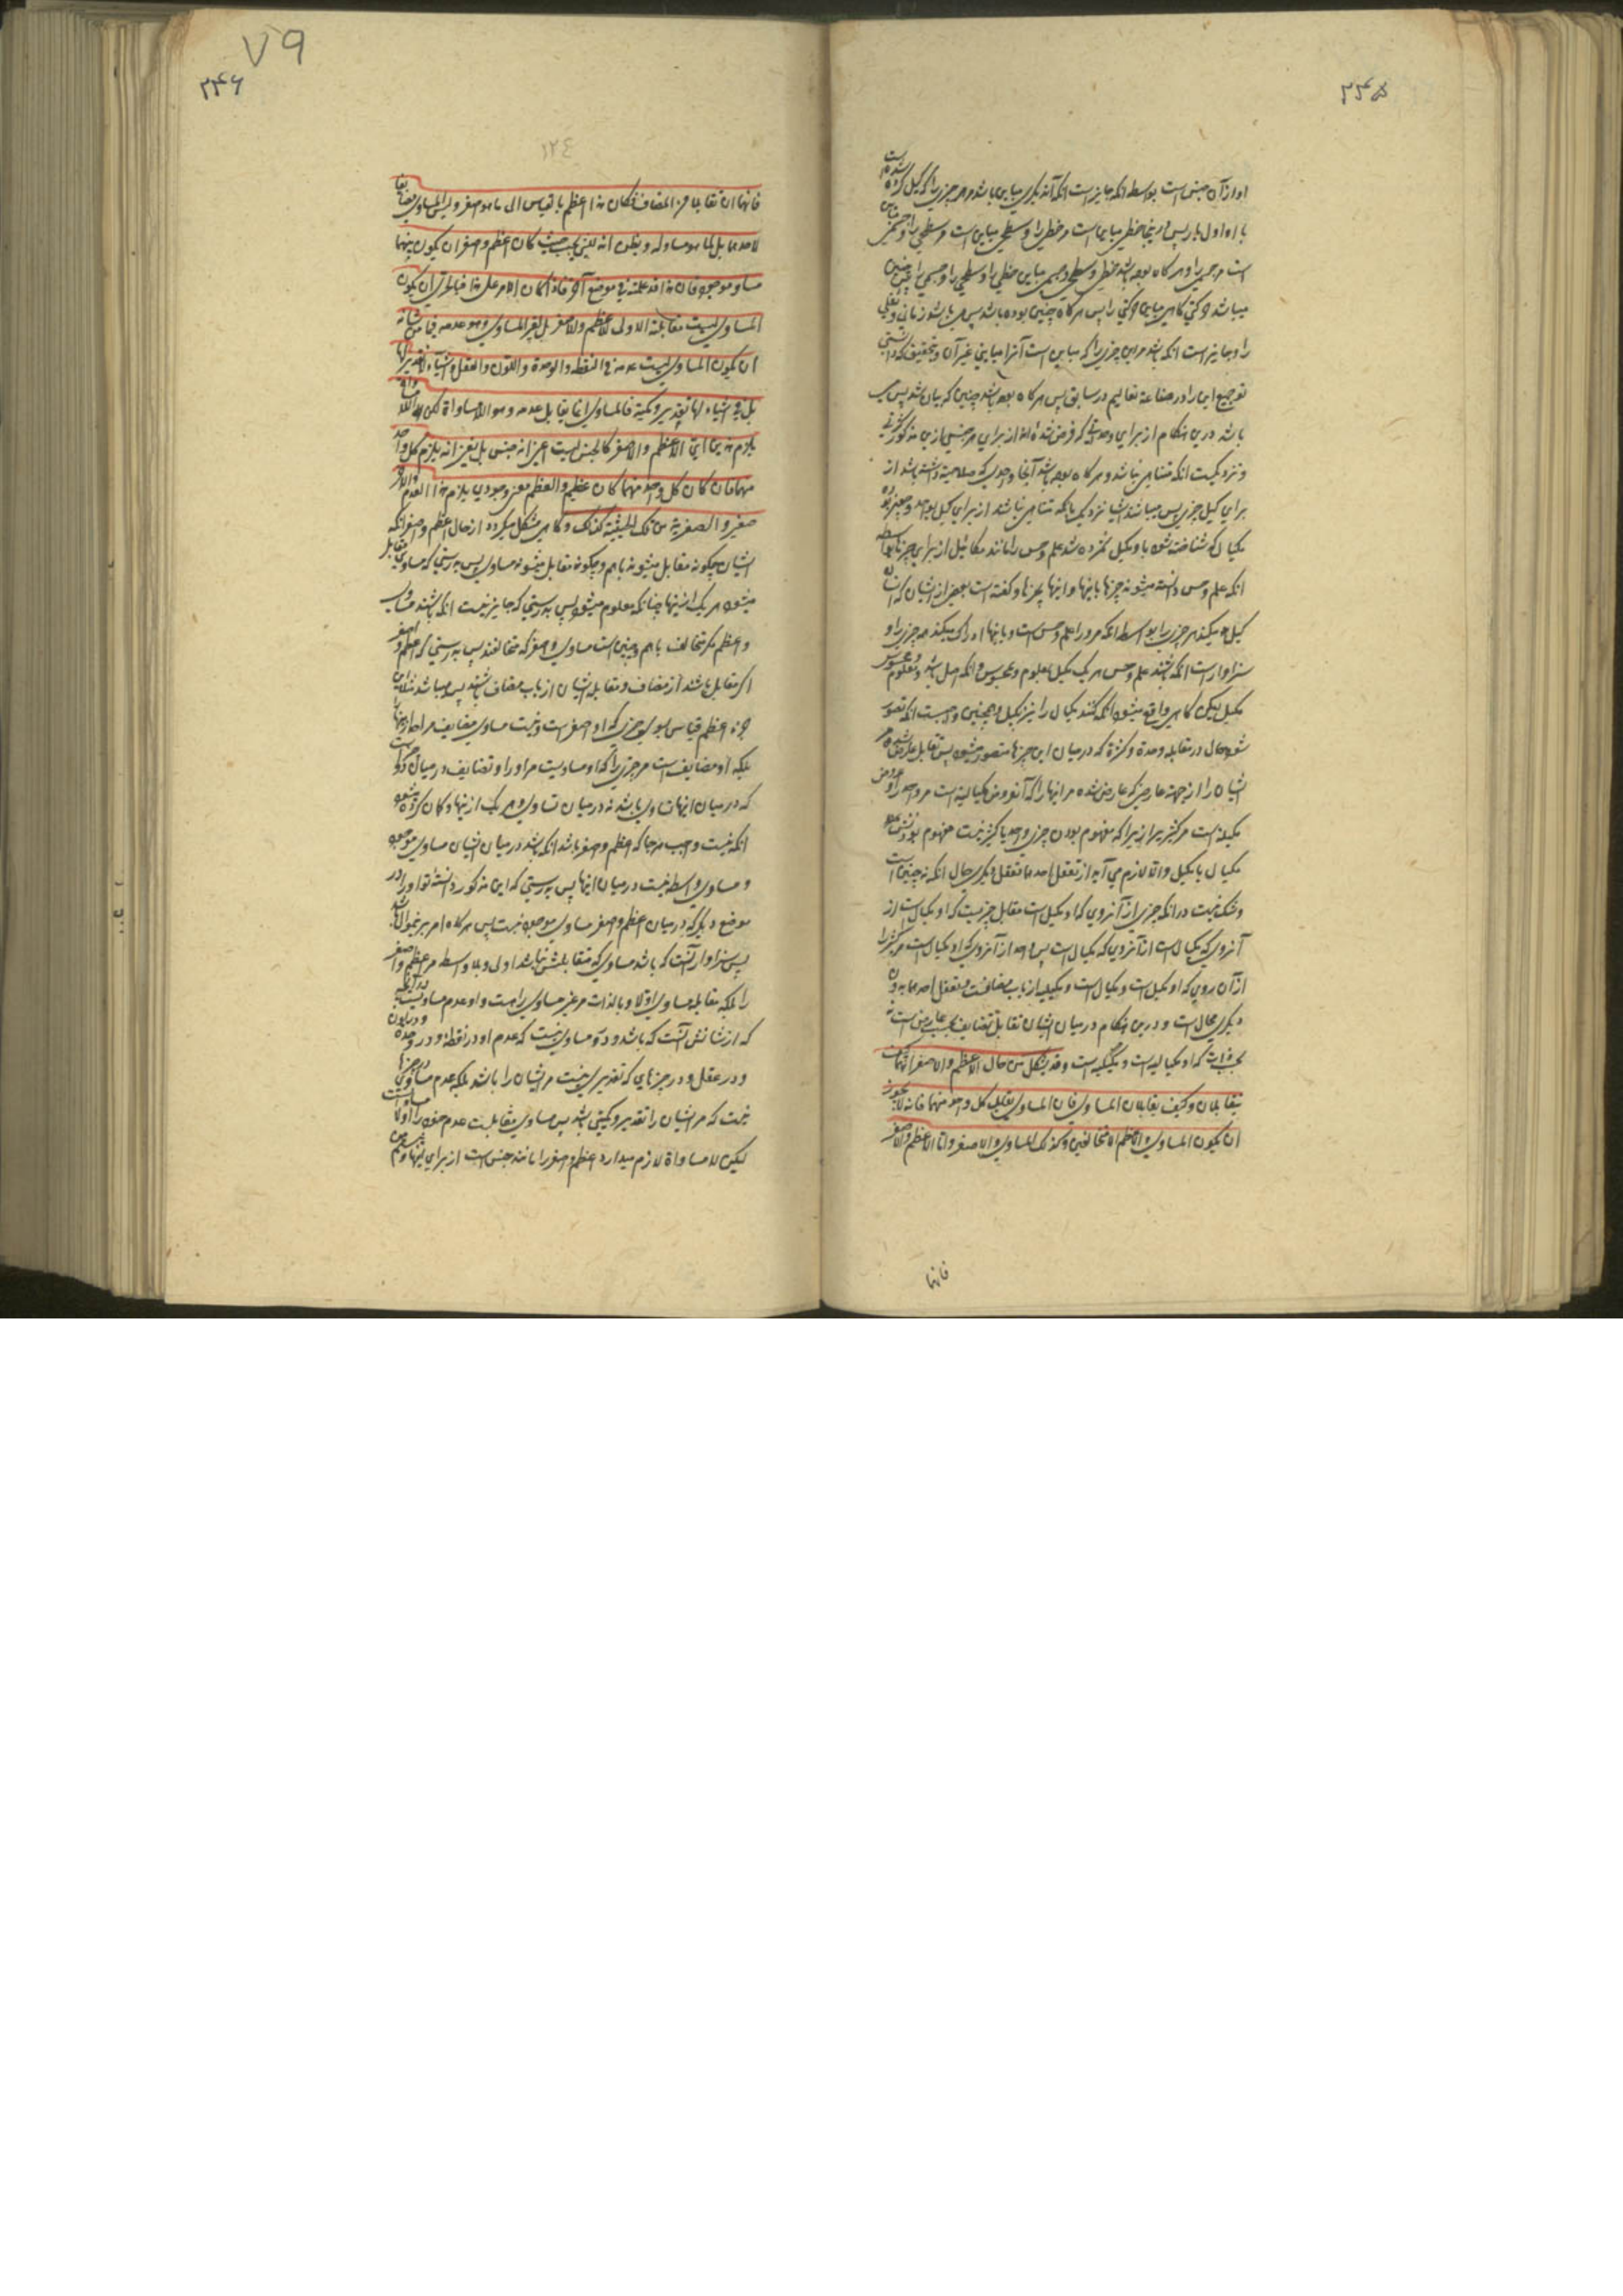 ۲۴۵
او از آن جنس است بواسطه انکه جایز است انکه آن دیگری مباین باشد مر چیزی را که کیل کرده شده است
با او اول بار پس در اینجا خطی مباین است مر خطی را و سطحی مباین است مر سطحی را و جسمی مباین
است مر جسمی را و هر کاه بوده باشد خطی و سطحی و جسمی مباین خطی را و سطحی را و جسمی را پس چنین
میباشد حرکتی کاهی مباین حرکتی را پس هر کاه چنین بوده باشد پس میباشد زمانی و ثقلی
را و جایز است انکه باشد مر این چیزی را که مباین است آنرا مباینی غیر آن و بتحقیق که دانستی
تو جمیع این را در صناعة تعالیم در سابق پس هر کاه بوده باشد چنین که بیان شد پس می
باشد درین هنکام از برای وحدتی که فرض شده از برای هر جنسی ازین مذکور
و نزدیکست انکه متناهی نباشد و هر کاه بوده باشد آنجا واحدی که صلاحیت داشته باشد از
برای کیل چیزی پس میباشد اشیا نزدیک بانکه متناهی نباشد از برای کیل بواحد و چون بود
مکیال که شناخته شود باو مکیل شمرده شد علم و حس را مانند مکائیل از برای چیزها بواسطه
انکه علم و حس دانسته میشوند چیزها باینها و گفته است بعضی از ایشان که انسان
کیل میکند هر چیزی را بواسطه انکه مر او را علم و حس است و باینها ادراک میکند هر چیزی را و
سزاوار است انکه باشند علم و حس هر یک مکیل بمعلوم و محسوس و انکه اصل باشد معلوم و محسوس
مکیل لیکن کاهی واقع میشود انکه کنند مکیال را نیز مکیل و همچنین واجبست انکه تصور
شود حال در مقابله وحدة و کثرة که در میان این چیزها متصور میشود پس تقابل عارض شده مر
ایشان را از جهة عارضی که عارض شده مر اینها را که آن عروض مکیالیة است مر واحد را و عروض
مکیلیة است مر کثیر را زیرا که مفهوم بودن چیزی واحد یا کثیر نیست مفهوم بودنش
مکیال یا مکیل و الا لازم می آید از تعقل احدهما تعقل دیگری حال انکه نه چنین است
و شک نیست در انکه چیزی از آنروی که او مکیل است مقابل چیزیست که او مکیال است از
آنروی که مکیال است از آنروی که مکیال است پس واحد از آنروی که او مکیال است مر کثیر را
از آن روی که او مکیل است و مکیال است و مکیلیة از باب مضافست و تعقل احدهما بدون
دیگری محال است و درین هنکام در میان ایشان تقابل تضایف بحسب عارض است نه
بحسب ذات که او مکیالیه است و مکیلیه است وقد یشکل من حال الاعظم والاصغر انهما کیف
یتقابلان وکیف یقابلان المساوی فان المساوی یقابل کل واحد منهما فانه لا یجوز
ان یکون المساوی والاعظم الا متخالفین وکذلک المساوی والاصغر واما الاعظم والاصغر
فانهما
۷۹
۲۴۶
١٢٤
فانهما ان تقابلا فمن المضاف فکان هذا اعظم بالقیاس الی ما هو اصغر ولیس المساوی مضایفا
لاحدهما بل لما هو مساو له ویظن انه لیس یجب حیث کان اعظم واصغر ان یکون بینهما
مساو موجود فان هذا قد علمته فی موضع آخر فاذا کان الامر علی هذا فبالحری ان یکون
المساوی لیست مقابلته الاولی للاعظم والاصغر بل لغیر المساوی وهو عدمه فیما من شانه
ان یکون المساوی لیست عدمه فی النقطة والوحدة واللون والعقل واشیاء لا تقدیر لها
بل فی اشیاء لها تقدیر وکمیة فالمساوی انما یقابل عدمه وهو اللامساواة لکن اللامساواة
یلزم هذین اعنی الاعظم والاصغر کالجنس لیست اعنی انه جنس بل اعنی انه یلزم کل واحد
منهما فان کان کل واحد منهما کان عظیم والعظم معنی وجودی یلزم هذا العدم والآخر
صغیر والصغریة من تلک الحیثیة کذلک و کاهی مشکل میکردد از حال اعظم و اصغر انکه
ایشان چکونه مقابل میشوند باهم و چکونه مقابل میشوند مساوی پس بدرستی که مساوی مقابل
میشود هر یک از اینها چنانکه معلوم میشود پس بدرستی که جایز نیست انکه باشند مساوی
و اعظم مکر متخالف باهم و چنین است مساوی و اصغر که متخالفند پس بدرستی که اعظم و اصغر
اکر مقابل باشند از مضاف و مقابله ایشان از باب مضاف باشد پس میباشد مثلا این
چیز اعظم قیاس بسوی چیزی که او اصغر است و نیست مساوی مضایف مر احد از اینها
بلکه او مضایف است مر چیزی را که او مساویست مر او را و تضایف در میان
که در میان اینها تساوی باشد نه در میان تساوی و هر یک از اینها و کان کرده میشود
انکه نیست واجب هر جا که اعظم و اصغر باشد انکه باشد در میان ایشان مساوی موجود
و مساوی واسطه نیست در میان اینها پس بدرستی که این مذکور دانسته تو او را در
موضع دیگر که در میان اعظم و اصغر مساوی موجود نیست پس هر کاه امر برین حال باشد
پس سزاوار آنست که باشد مساوی که مقابلش نباشد اولی و بلا واسطه مر اعظم و اصغر
را بلکه مقابله مساوی اولا و بالذات مر غیر مساوی راست و او عدم مساویست در آنچه
که از شانش آنست که باشد و در او مساوی نیست که عدم او در نقطه و در وحدة و در لون
و در عقل و در چیزهایی که تقدیری نیست مر ایشان را باشد بلکه عدم مساوی در چیزها
نیست که مر ایشان را تقدیر و کمیتی باشد پس مساوی مقابلست عدم خود را اولا
لیکن لا مساواة لازم میدارد اعظم و اصغر را مانند جنس است از برای اینها